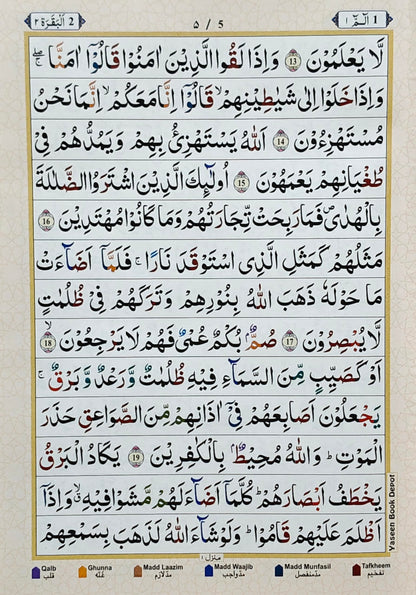 2 اَلْبَقَرَة ٢
۵ / 5
1 الٓمّٓ ١
لَّا يَعْلَمُوْنَ ﴿13﴾ وَاِذَا لَقُوا الَّذِيْنَ اٰمَنُوْا قَالُوْٓا اٰمَنَّا ۖۚ
وَاِذَا خَلَوْا اِلٰى شَيٰطِيْنِهِمْ ۙ قَالُوْٓا اِنَّا مَعَكُمْ ۙ اِنَّمَا نَحْنُ
مُسْتَهْزِءُوْنَ ﴿14﴾ اَللّٰهُ يَسْتَهْزِئُ بِهِمْ وَيَمُدُّهُمْ فِىْ
طُغْيَانِهِمْ يَعْمَهُوْنَ ﴿15﴾ اُولٰٓئِكَ الَّذِيْنَ اشْتَرَوُا الضَّلٰلَةَ
بِالْهُدٰى ۪ فَمَا رَبِحَتْ تِّجَارَتُهُمْ وَمَا كَانُوْا مُهْتَدِيْنَ ﴿16﴾
مَثَلُهُمْ كَمَثَلِ الَّذِى اسْتَوْقَدَ نَارًا ۚ فَلَمَّآ اَضَآءَتْ
مَا حَوْلَهٗ ذَهَبَ اللّٰهُ بِنُوْرِهِمْ وَتَرَكَهُمْ فِىْ ظُلُمٰتٍ
لَّا يُبْصِرُوْنَ ﴿17﴾ صُمٌّۢ بُكْمٌ عُمْىٌ فَهُمْ لَا يَرْجِعُوْنَ ۙ﴿18﴾
اَوْ كَصَيِّبٍ مِّنَ السَّمَآءِ فِيْهِ ظُلُمٰتٌ وَّرَعْدٌ وَّبَرْقٌ ۚ
يَجْعَلُوْنَ اَصَابِعَهُمْ فِىْٓ اٰذَانِهِمْ مِّنَ الصَّوَاعِقِ حَذَرَ
الْمَوْتِ ؕ وَاللّٰهُ مُحِيْطٌۢ بِالْكٰفِرِيْنَ ﴿19﴾ يَكَادُ الْبَرْقُ
يَخْطَفُ اَبْصَارَهُمْ ؕ كُلَّمَآ اَضَآءَ لَهُمْ مَّشَوْا فِيْهِ ۙ وَاِذَآ
اَظْلَمَ عَلَيْهِمْ قَامُوْا ؕ وَلَوْ شَآءَ اللّٰهُ لَذَهَبَ بِسَمْعِهِمْ
منزل ١
Yaseen Book Depot
Qalb قلب
Ghunna غنّه
Madd Laazim مدّلازم
Madd Waajib مدّواجب
Madd Munfasil مدّمنفصل
Tafkheem تفخيم